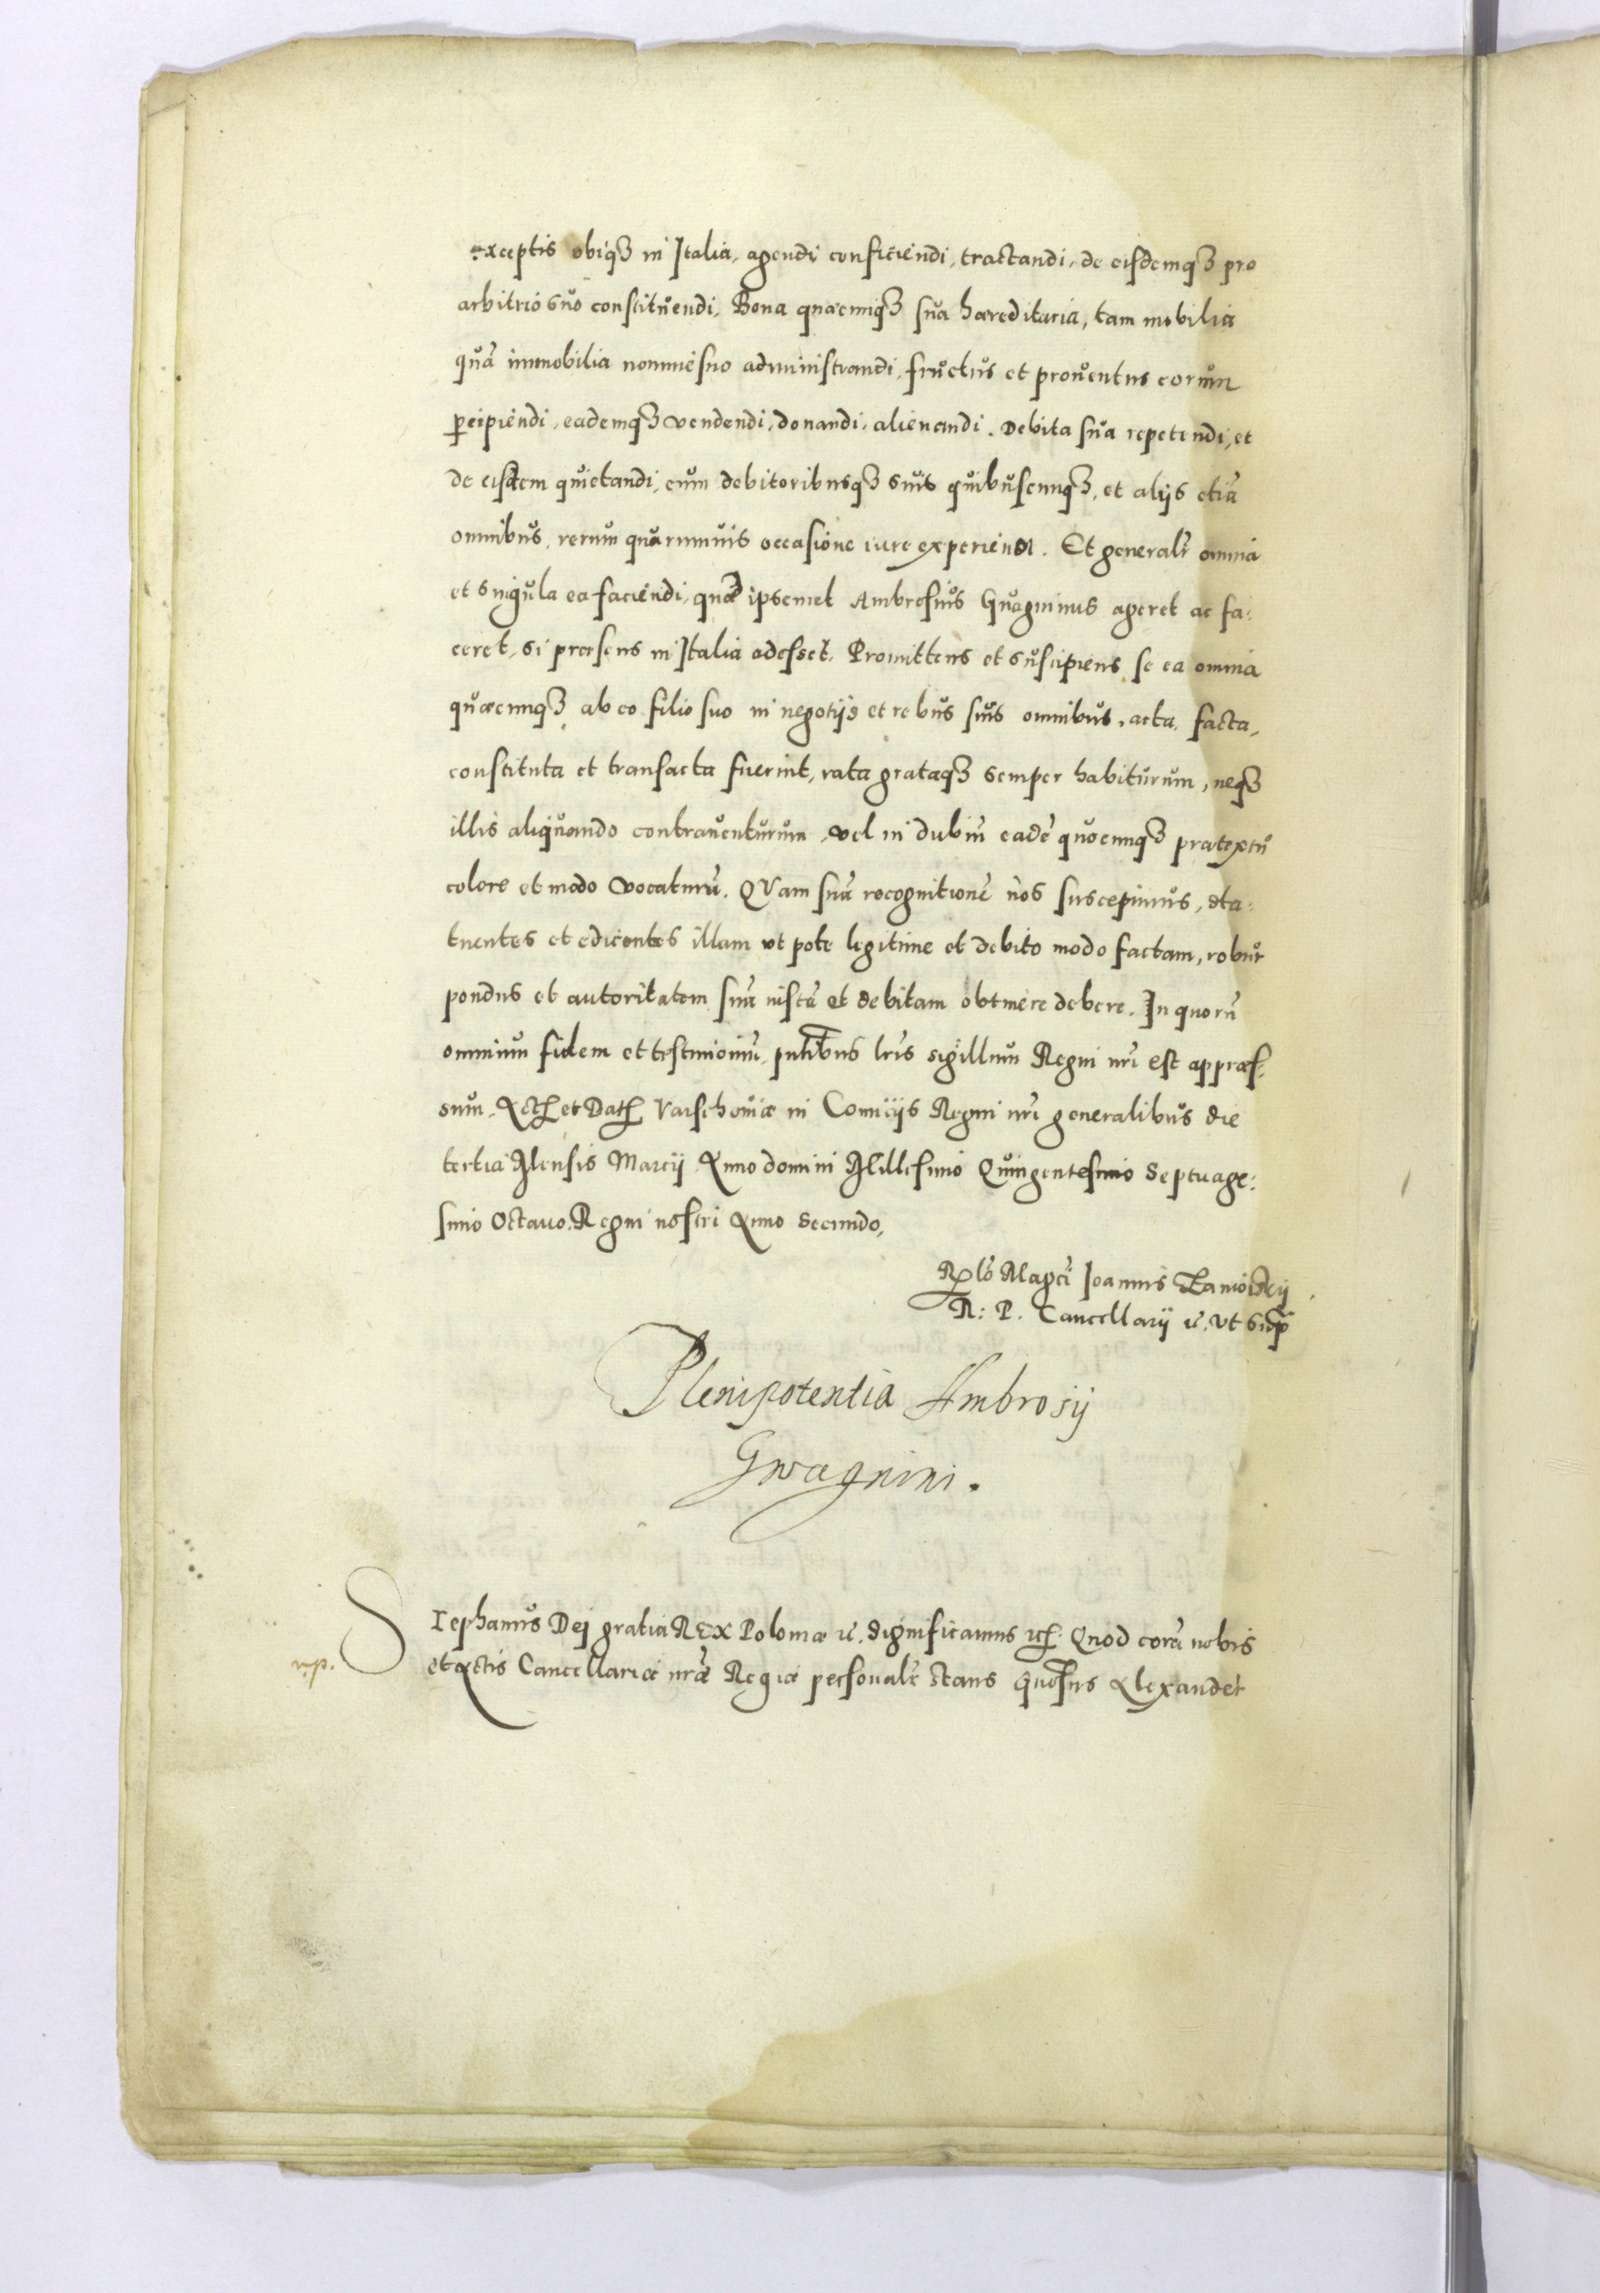 exceptis ubiqȝ in Italia, agendi conficiendi, tractandi, de eisdemqȝ pro
arbitrio suo constituendi, Bona quæcunqȝ sua hæreditaria, tam mobilia
quā immobilia nomine suo administrandi, fructus et prouentus eorum
ꝑcipiendi, eademqȝ vendendi, donandi, alienandi. Debita sua repetendi, et
de eisdem quietandi, cum debitoribusqȝ suis quibuscunqȝ, et alijs etiā
omnibus, rerum quarumuis occasione iure experiendi. Et generalr̄ omnia
et singula ea faciendi, quæ ipsemet Ambrosius Guagninus ageret ac fa:
ceret, si præsens in Italia adesset. Promittens et suscipiens se ea omnia
quæcunqȝ ab eo filio suo in negotijs et rebus suis omnibus, acta, facta,
constituta et transacta fuerint, rata grataqȝ semper habiturum, neqȝ
illis aliquando contrauenturum, vel in dubiū eadē quocunqȝ prætextu
colore et modo vocaturū. QVam suā recognitionē nos suscepimus, sta:
tuentes et edicentes illam ut pote legitime et debito modo factam, robur
pondus et autoritatem suā iustā et debitam obtinere debere. In quorū
omnium fidem et testimoniū, pn̄tibus lr̄is sigillum Regni nr̄i est appres:
sum. Act. et Dat. Varschouiæ in Comicijs Regni nr̄i generalibus die
tertia Mensis Marcij Anno domini Millesimo Quingentesimo Septuage:
simo Octauo, Regni nostri Anno Secundo,
Rlō Magcī Joannis Zamoiskij
R: P. Cancellarij &c. ut supra
Plenipotentia Ambrosij
Gwagnini.
Stephanus Dej gratia REX Poloniæ &c. Significamus &c. Quod corā nobis
np.
et Actis Cancellariæ nr̄æ Regiæ personalr̄ stans Gn̄osus Alexander